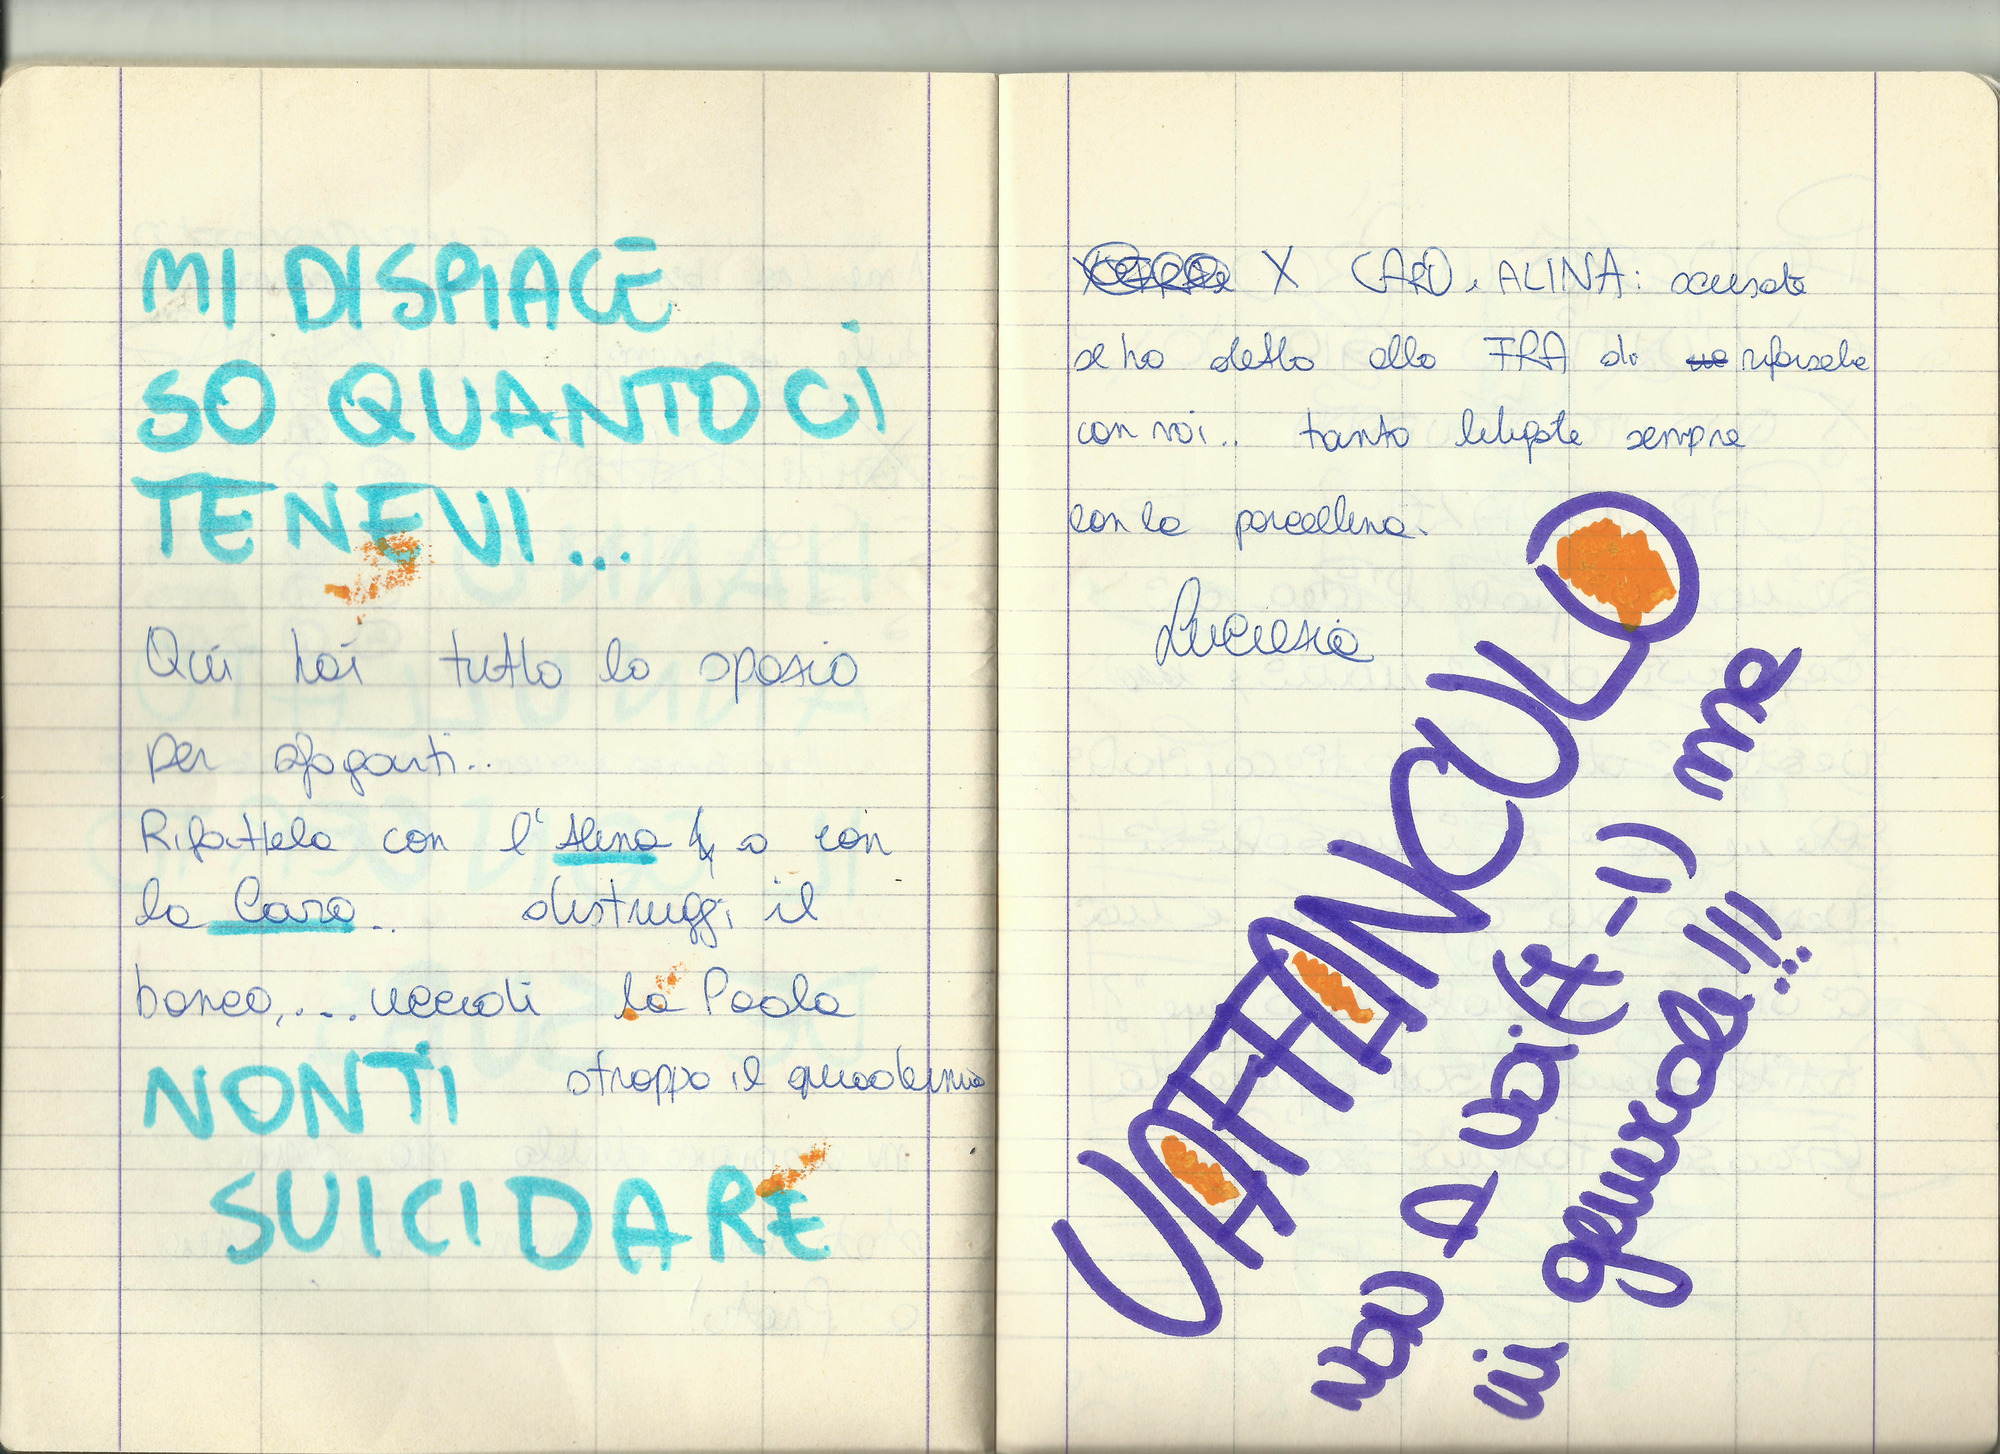 MI DISPIACE
SO QUANTO CI
TENEVI...
Qui hai tutto lo spazio
per sfogarti..
Rifattela con l'Alina o con
la Caro.. distruggi il
banco,... uccidi la Paola
strappa il quaderno
NON TI
SUICIDARE
X CARO, ALINA: scusate
se ho detto alla FRA di rifarsela
con voi.. tanto litigate sempre
con la porcellina.
Lucrezia
VAFFANCULO
non A voi (A-1) ma
in generale!!!...